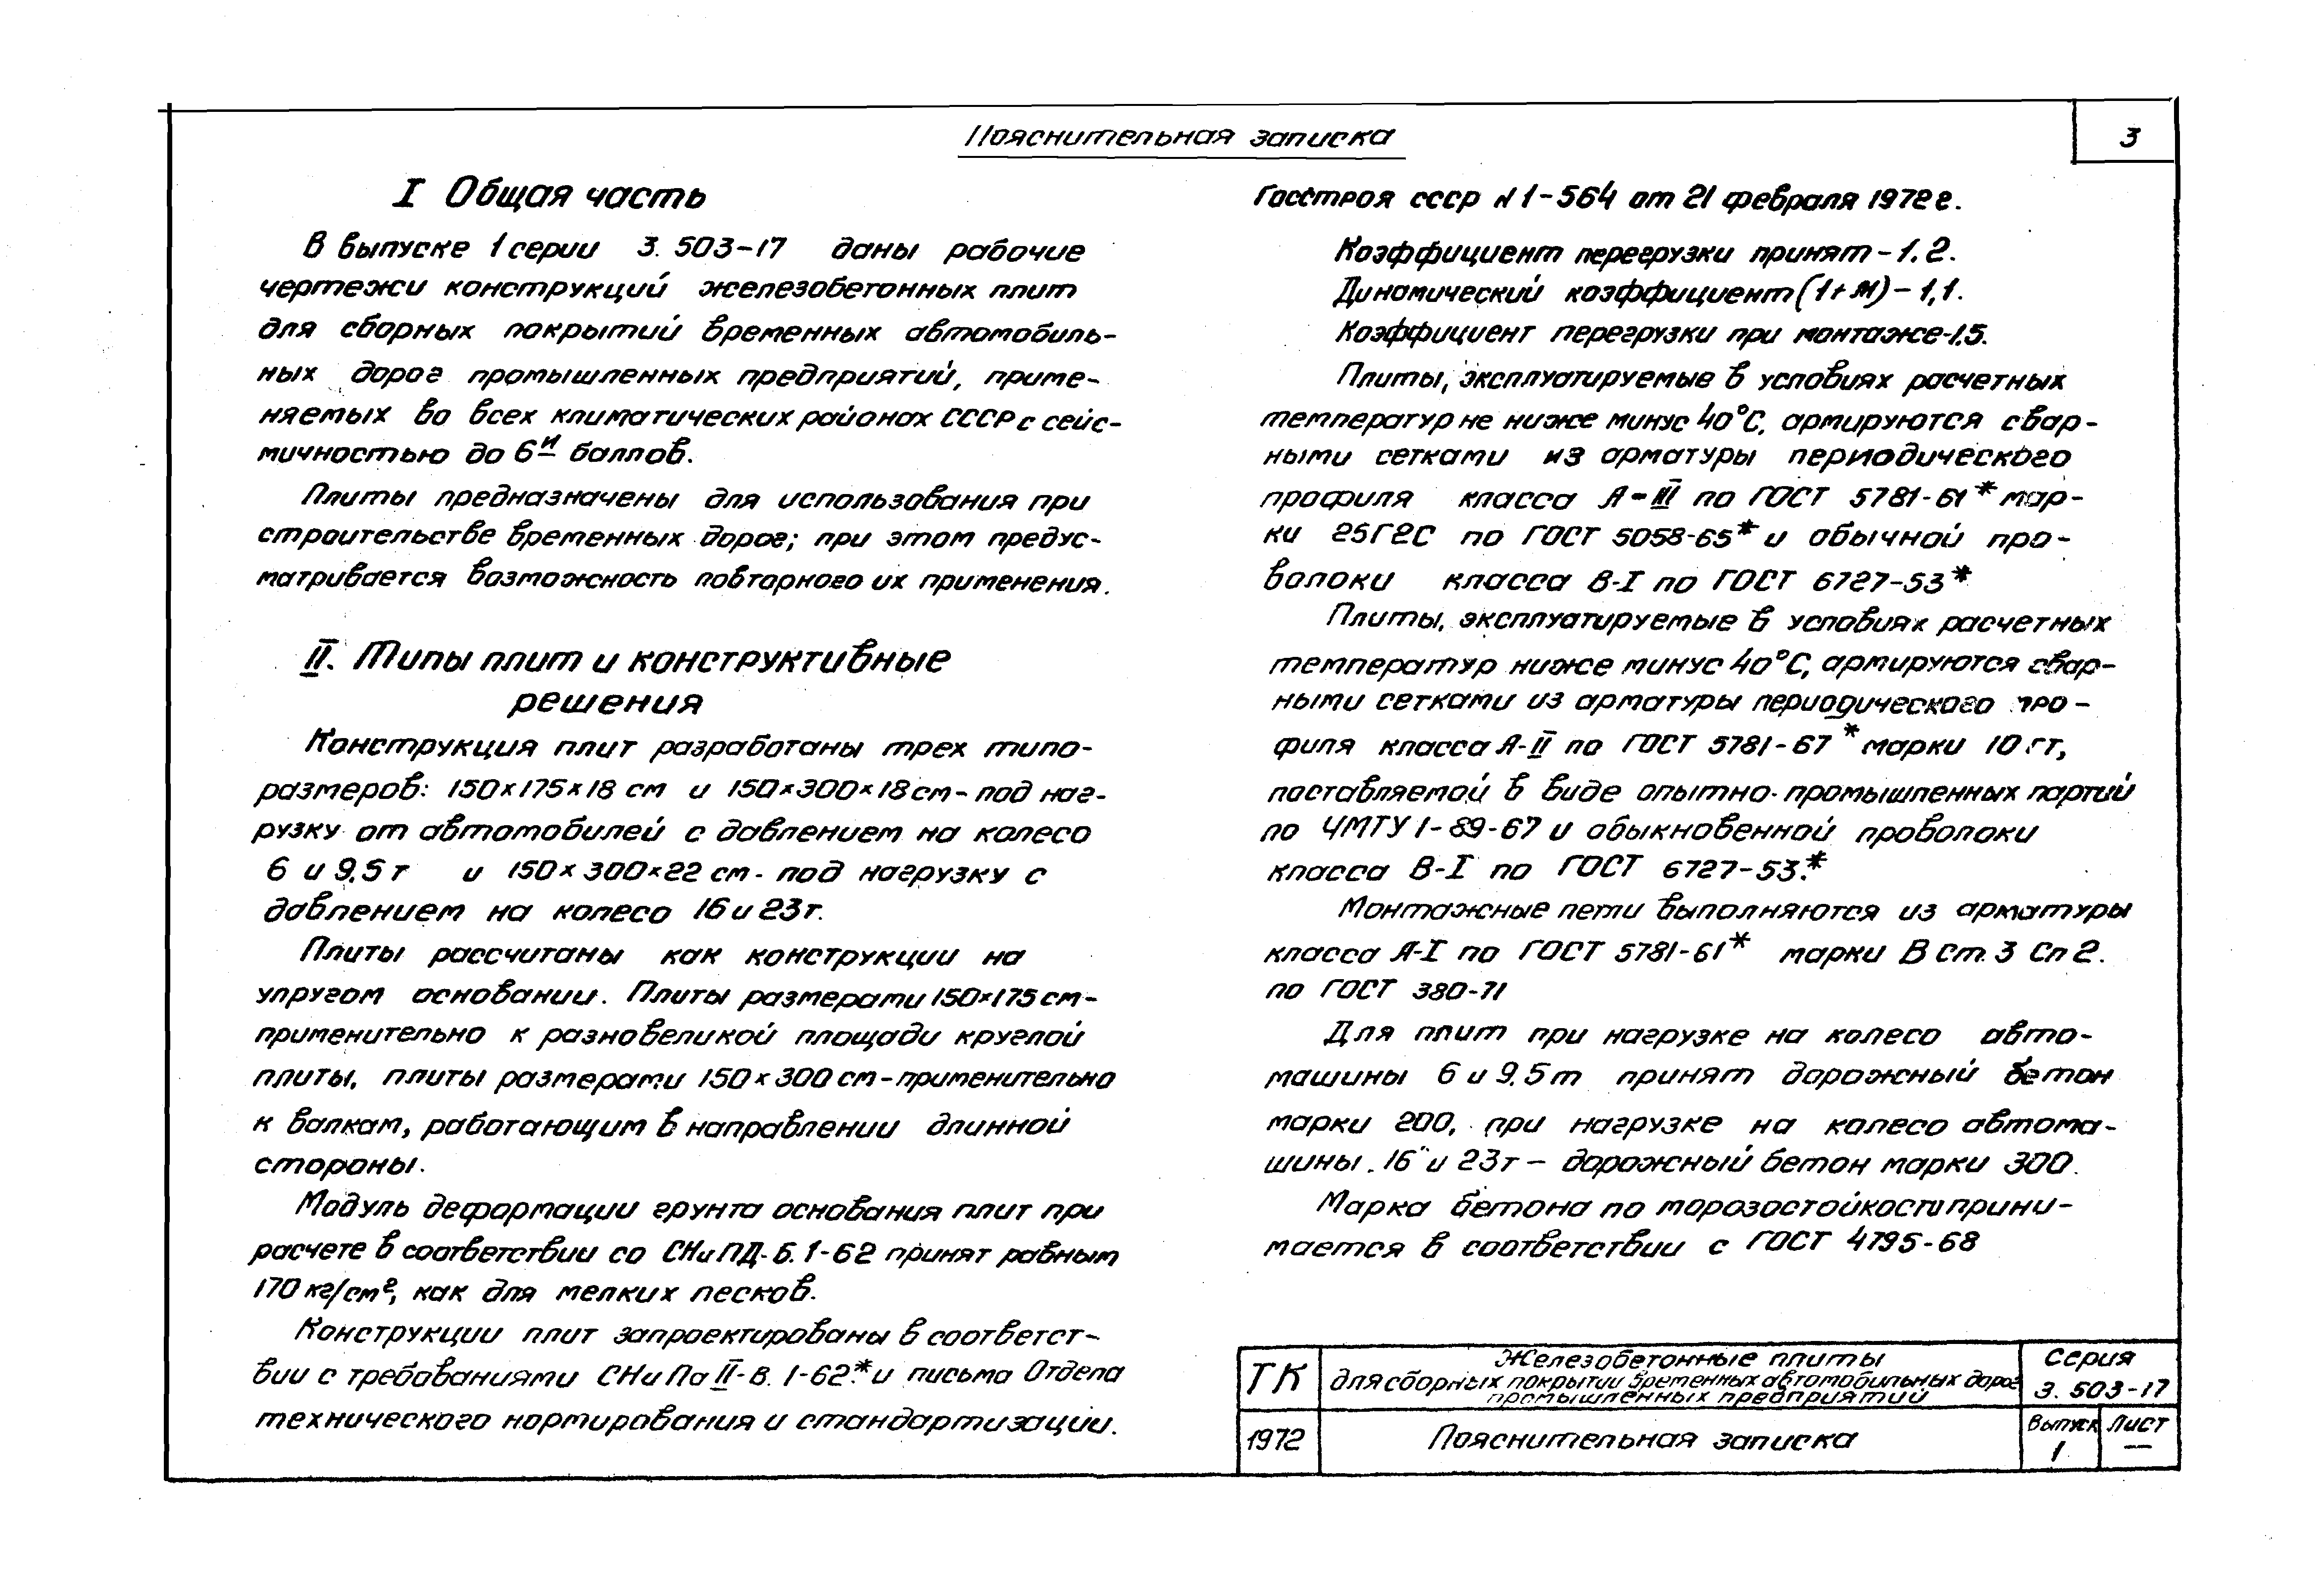 Пояснительная записка
3
I Общая часть
В выпуске 1 серии 3.503-17 даны рабочие
чертежи конструкций железобетонных плит
для сборных покрытий временных автомобиль-
ных дорог промышленных предприятий, приме-
няемых во всех климатических районах СССР с сейс-
мичностью до 6и баллов.
Плиты предназначены для использования при
строительстве временных дорог; при этом предус-
матривается возможность повторного их применения.
II. Типы плит и конструктивные
решения
Конструкция плит разработаны трех типо-
размеров: 150×175×18 см и 150×300×18 см - под наг-
рузку от автомобилей с давлением на колесо
6 и 9,5 т и 150×300×22 см - под нагрузку с
давлением на колесо 16 и 23 т.
Плиты рассчитаны как конструкции на
упругом основании. Плиты размерами 150×175 см -
применительно к разновеликой площади круглой
плиты, плиты размерами 150×300 см - применительно
к валкам, работающим в направлении длинной
стороны.
Модуль деформации грунта основания плит при
расчете в соответствии со СНиПД-Б.1-62 принят равным
170 кг/см², как для мелких песков.
Конструкции плит запроектированы в соответст-
вии с требованиями СНиПа II-В.1-62.* и письма Отдела
технического нормирования и стандартизации.
Госстроя СССР N 1-564 от 21 февраля 1972 г.
Коэффициент перегрузки принят - 1.2.
Динамический коэффициент (1+М) - 1,1.
Коэффициент перегрузки при монтаже - 1.5.
Плиты, эксплуатируемые в условиях расчетных
температур не ниже минус 40°С, армируются свар-
ными сетками из арматуры периодического
профиля класса А-III по ГОСТ 5781-61* мар-
ки 25Г2С по ГОСТ 5058-65* и обычной про-
волоки класса В-I по ГОСТ 6727-53*
Плиты, эксплуатируемые в условиях расчетных
температур ниже минус 40°С, армируются свар-
ными сетками из арматуры периодического про-
филя класса А-II по ГОСТ 5781-67* марки 10ГТ,
поставляемой в виде опытно-промышленных партий
по ЧМТУ 1-89-67 и обыкновенной проволоки
класса В-I по ГОСТ 6727-53.*
Монтажные петли выполняются из арматуры
класса А-I по ГОСТ 5781-61* марки В Ст.3 Сп 2.
по ГОСТ 380-71
Для плит при нагрузке на колесо авто-
машины 6 и 9,5 т принят дорожный бетон
марки 200, при нагрузке на колесо автома-
шины 16 и 23 т - дорожный бетон марки 300.
Марка бетона по морозостойкости прини-
мается в соответствии с ГОСТ 4795-68
ТК
Железобетонные плиты
для сборных покрытий временных автомобильных дорог
промышленных предприятий
Серия
3.503-17
1972
Пояснительная записка
Выпуск
1
Лист
—